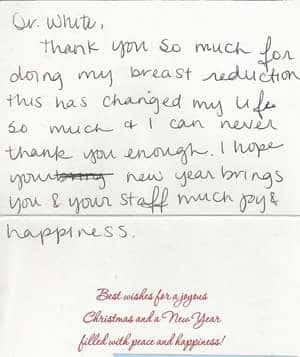 Dr. White,
Thank you so much for
doing my breast reduction
this has changed my life
so much & I can never
thank you enough. I hope
your new year brings
you & your staff much joy &
happiness.
Best wishes for a joyous
Christmas and a New Year
filled with peace and happiness!